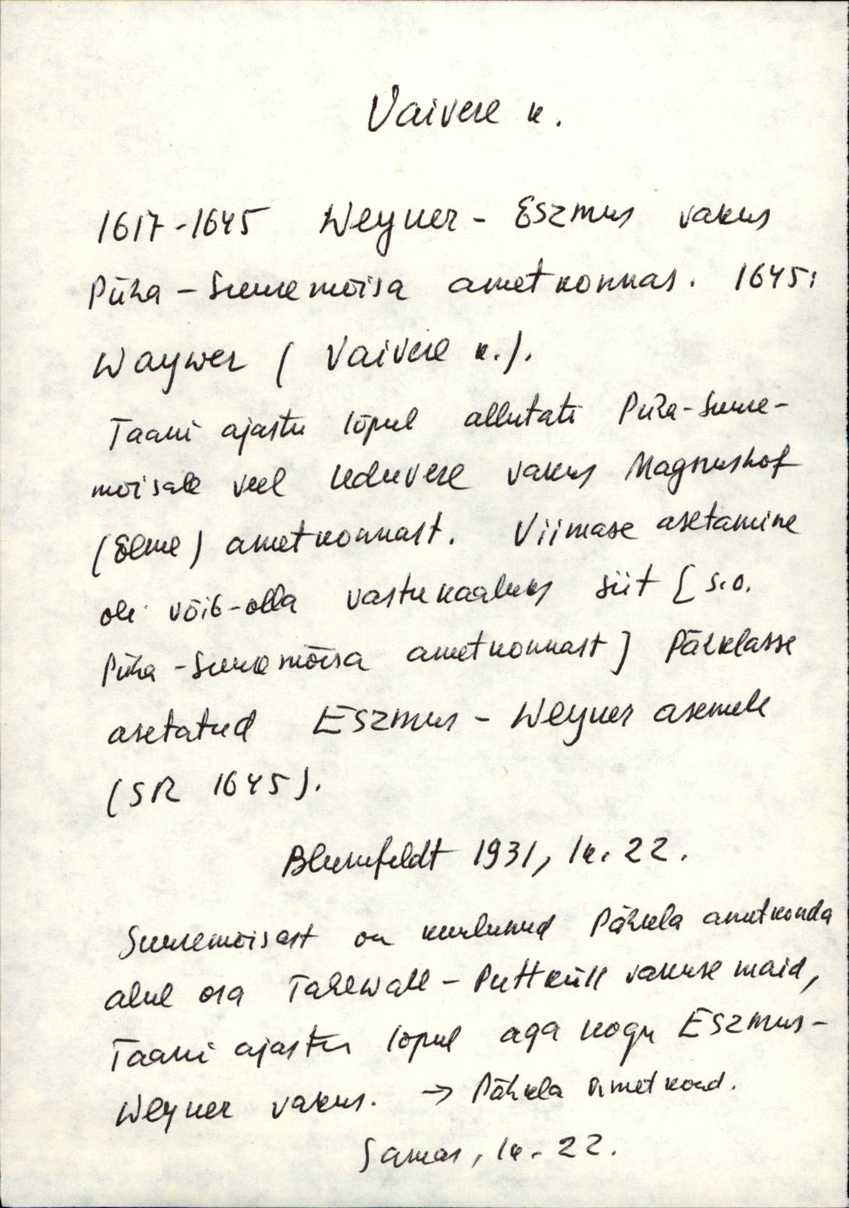 Vaivere k.
1617-1645 Weyner - Eszmus vakus
Püha - Suuremõisa ametkonnas. 1645:
Waywer ( Vaivere k.).
Taani ajastu lõpul allutati Püha-Suure-
mõisale veel Uduvere vakus Magnushof
(Eleme) ametkonnast. Viimase asetamine
oli võib-olla vastukaaluks siit [s.o.
Püha - Suuremõisa ametkonnast] Pähklasse
asetatud Eszmus - Weyner asemele
(SR 1645).
Blumfeldt 1931, lk. 22.
Suuremõisast on kuulunud Pähkla ametkonda
alul osa Tahewall - Puttküll vakuse maid,
Taani ajastu lõpul aga kogu Eszmus-
Weyner vakus. → Pähkla ametkond.
Samas, lk. 22.